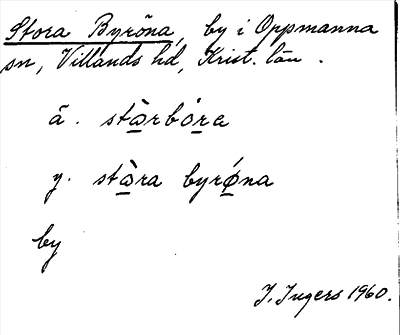 Stora Byröna, by i Oppmanna
sn, Villands hd, Krist. län.
ä. stàrbóra
y. stàra byrǿna
by
J. Ingers 1960.